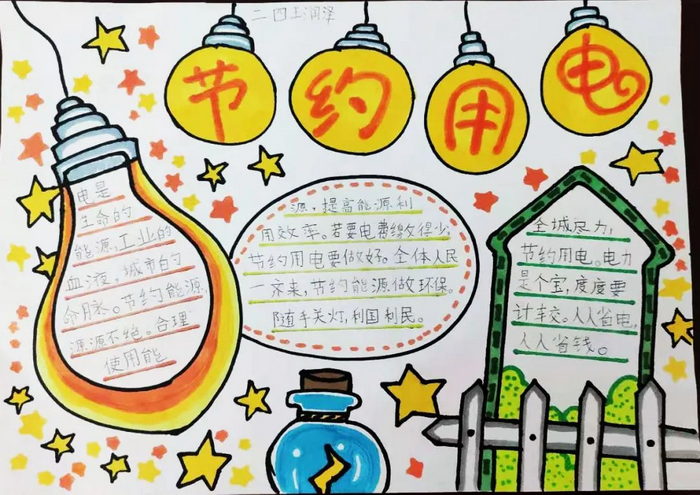 二四王润泽
节约用电
电是
生命的
能源,工业的
血液,城市的
命脉。节约能源,
源源不绝。合理
使用能
源,提高能源利
用效率。若要电费缴得少,
节约用电要做好。全体人民
一齐来,节约能源做环保。
随手关灯,利国利民。
全城尽力,
节约用电。电力
是个宝,度度要
计较。人人省电,
人人省钱。